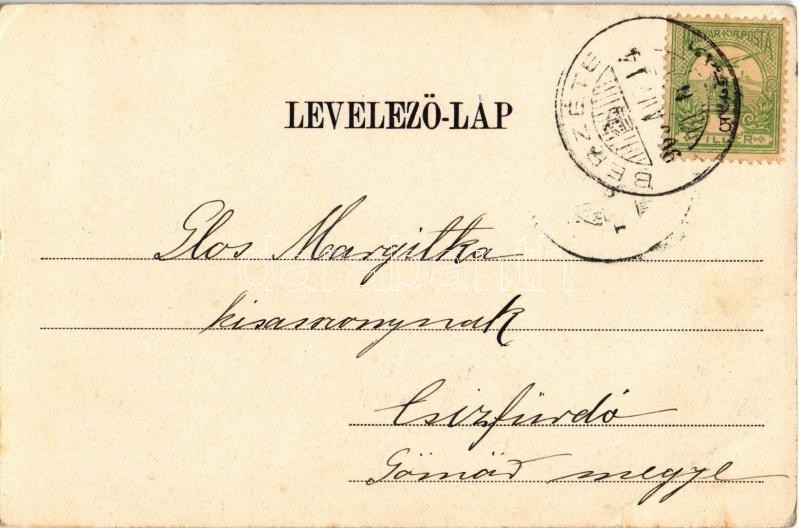 MAGYAR·KIR·POSTA
5
FILLÉR
BERZÉTE
LEVELEZŐ-LAP
Glos Margitka
kisasszonynak
Csizfürdő
Gömör megye
darabanth